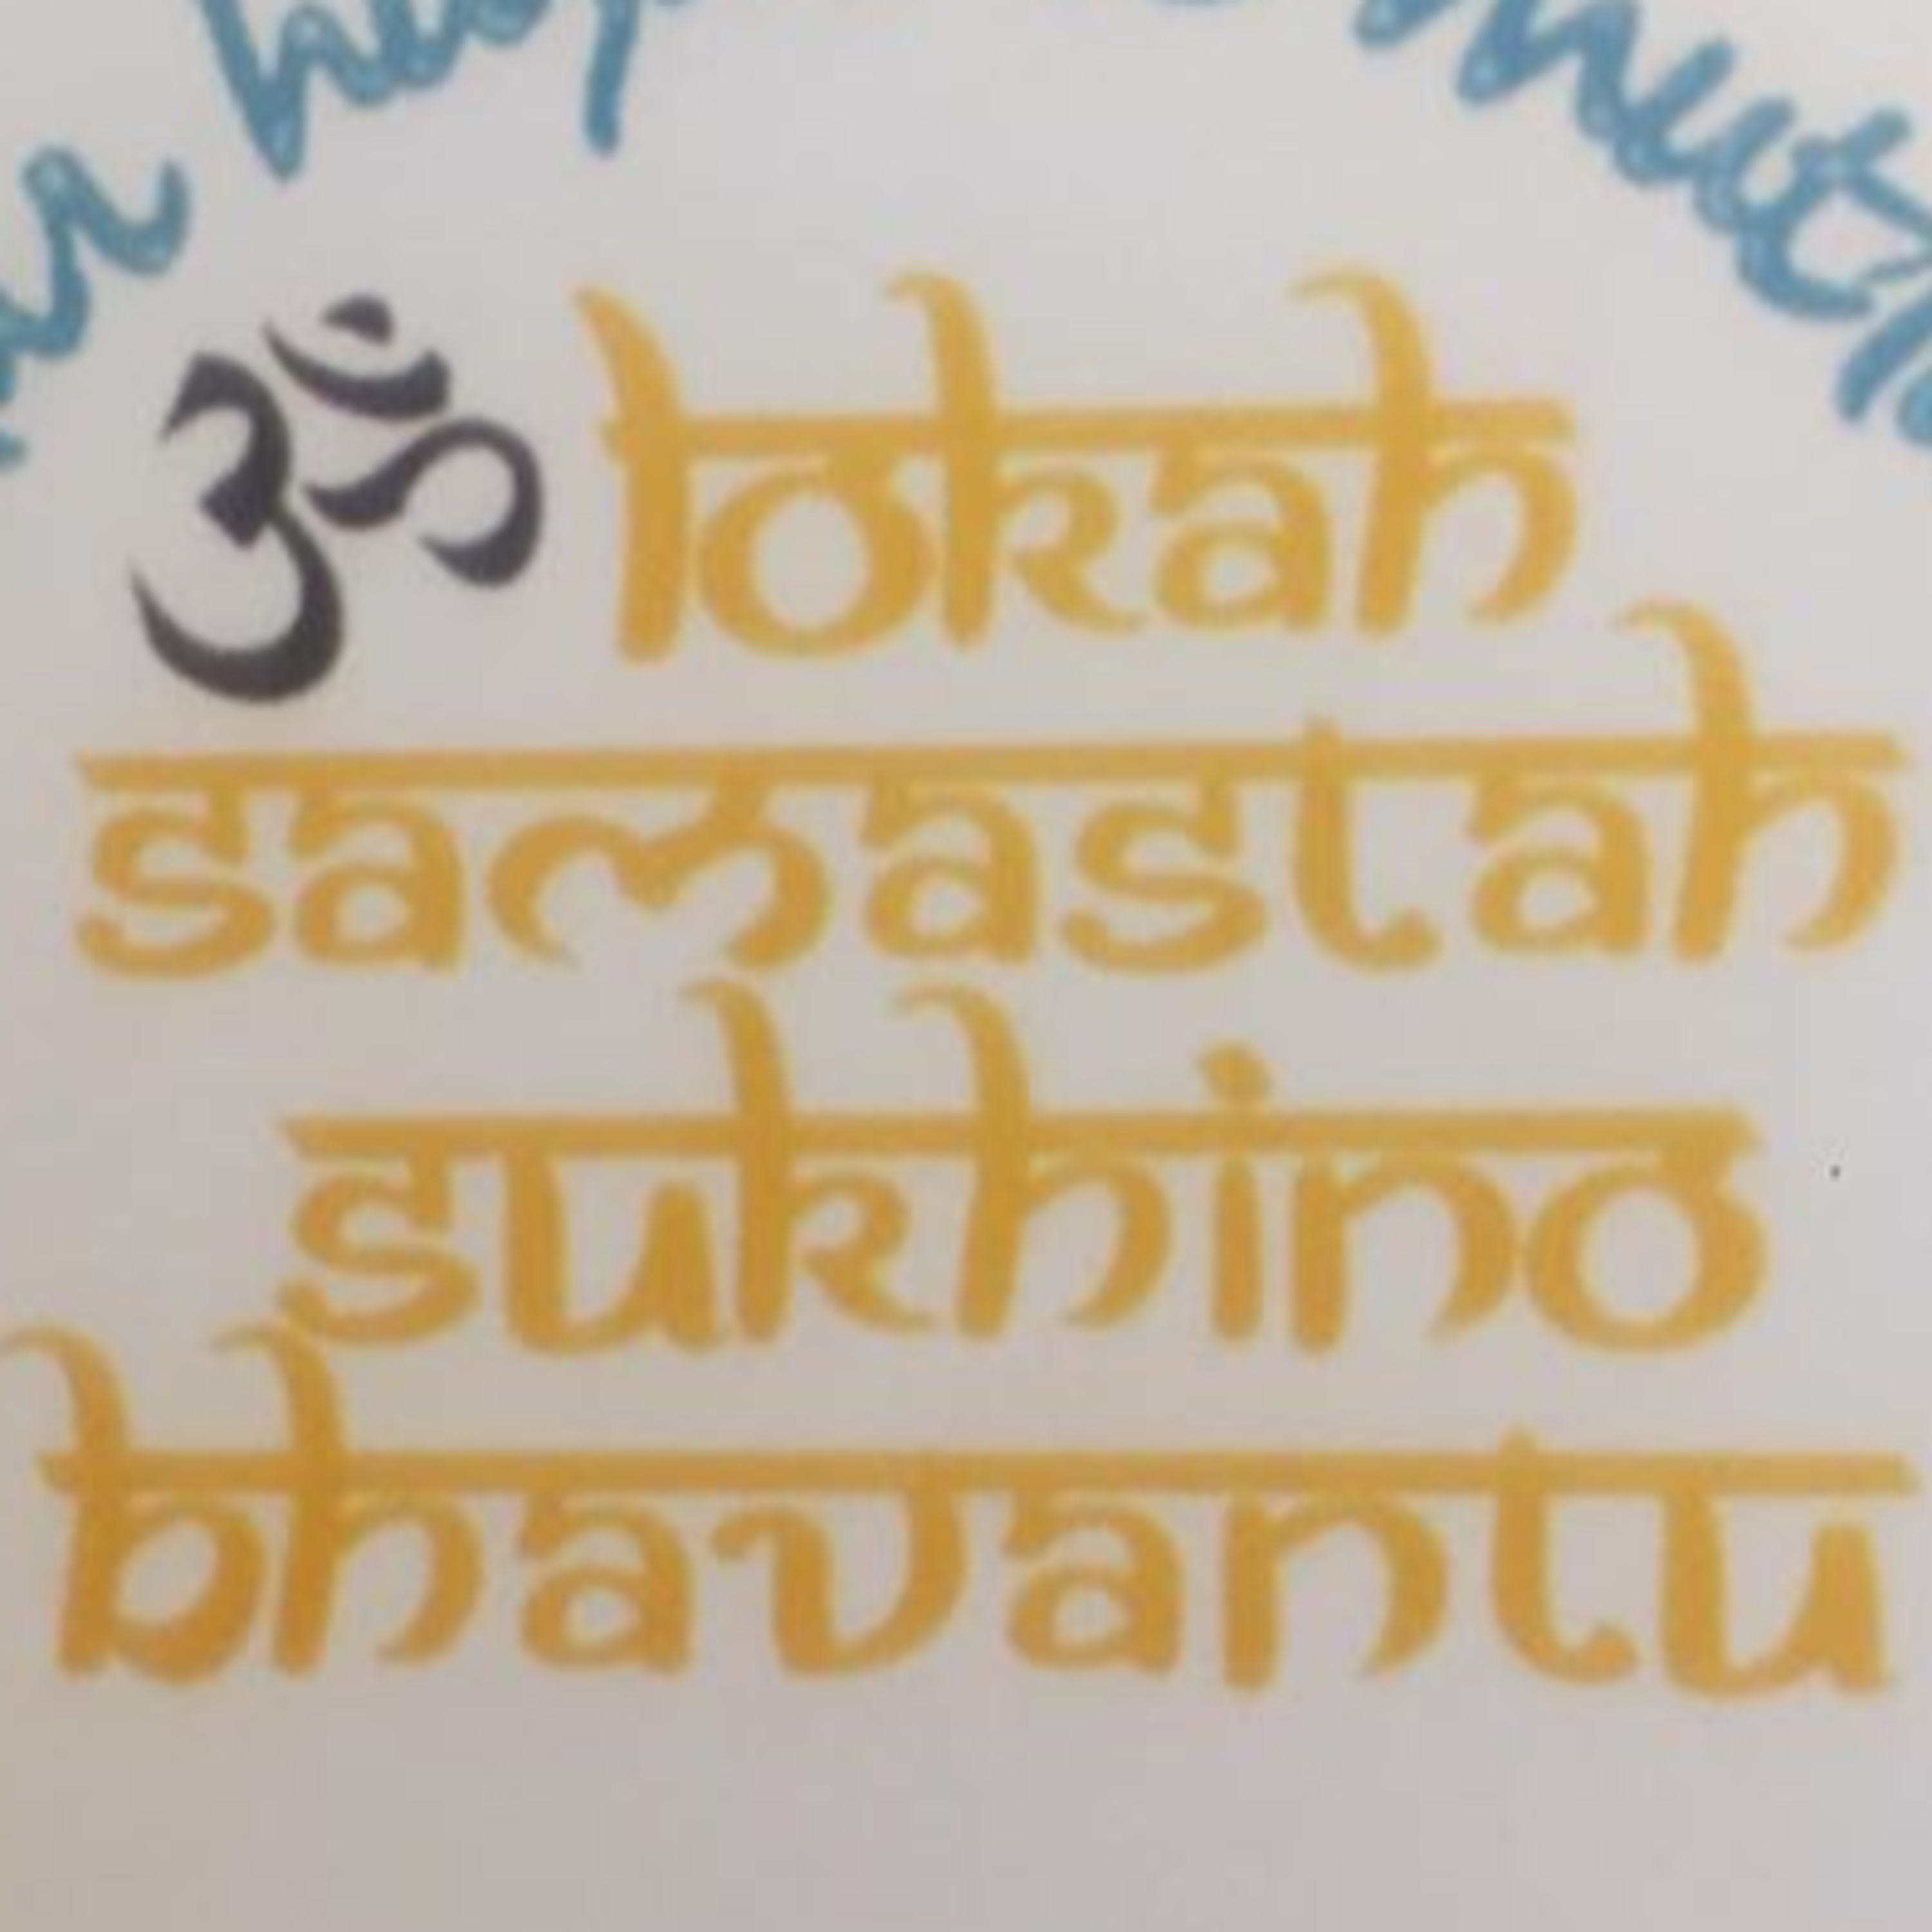 ॐ lokah
samastah
sukhino
bhavantu